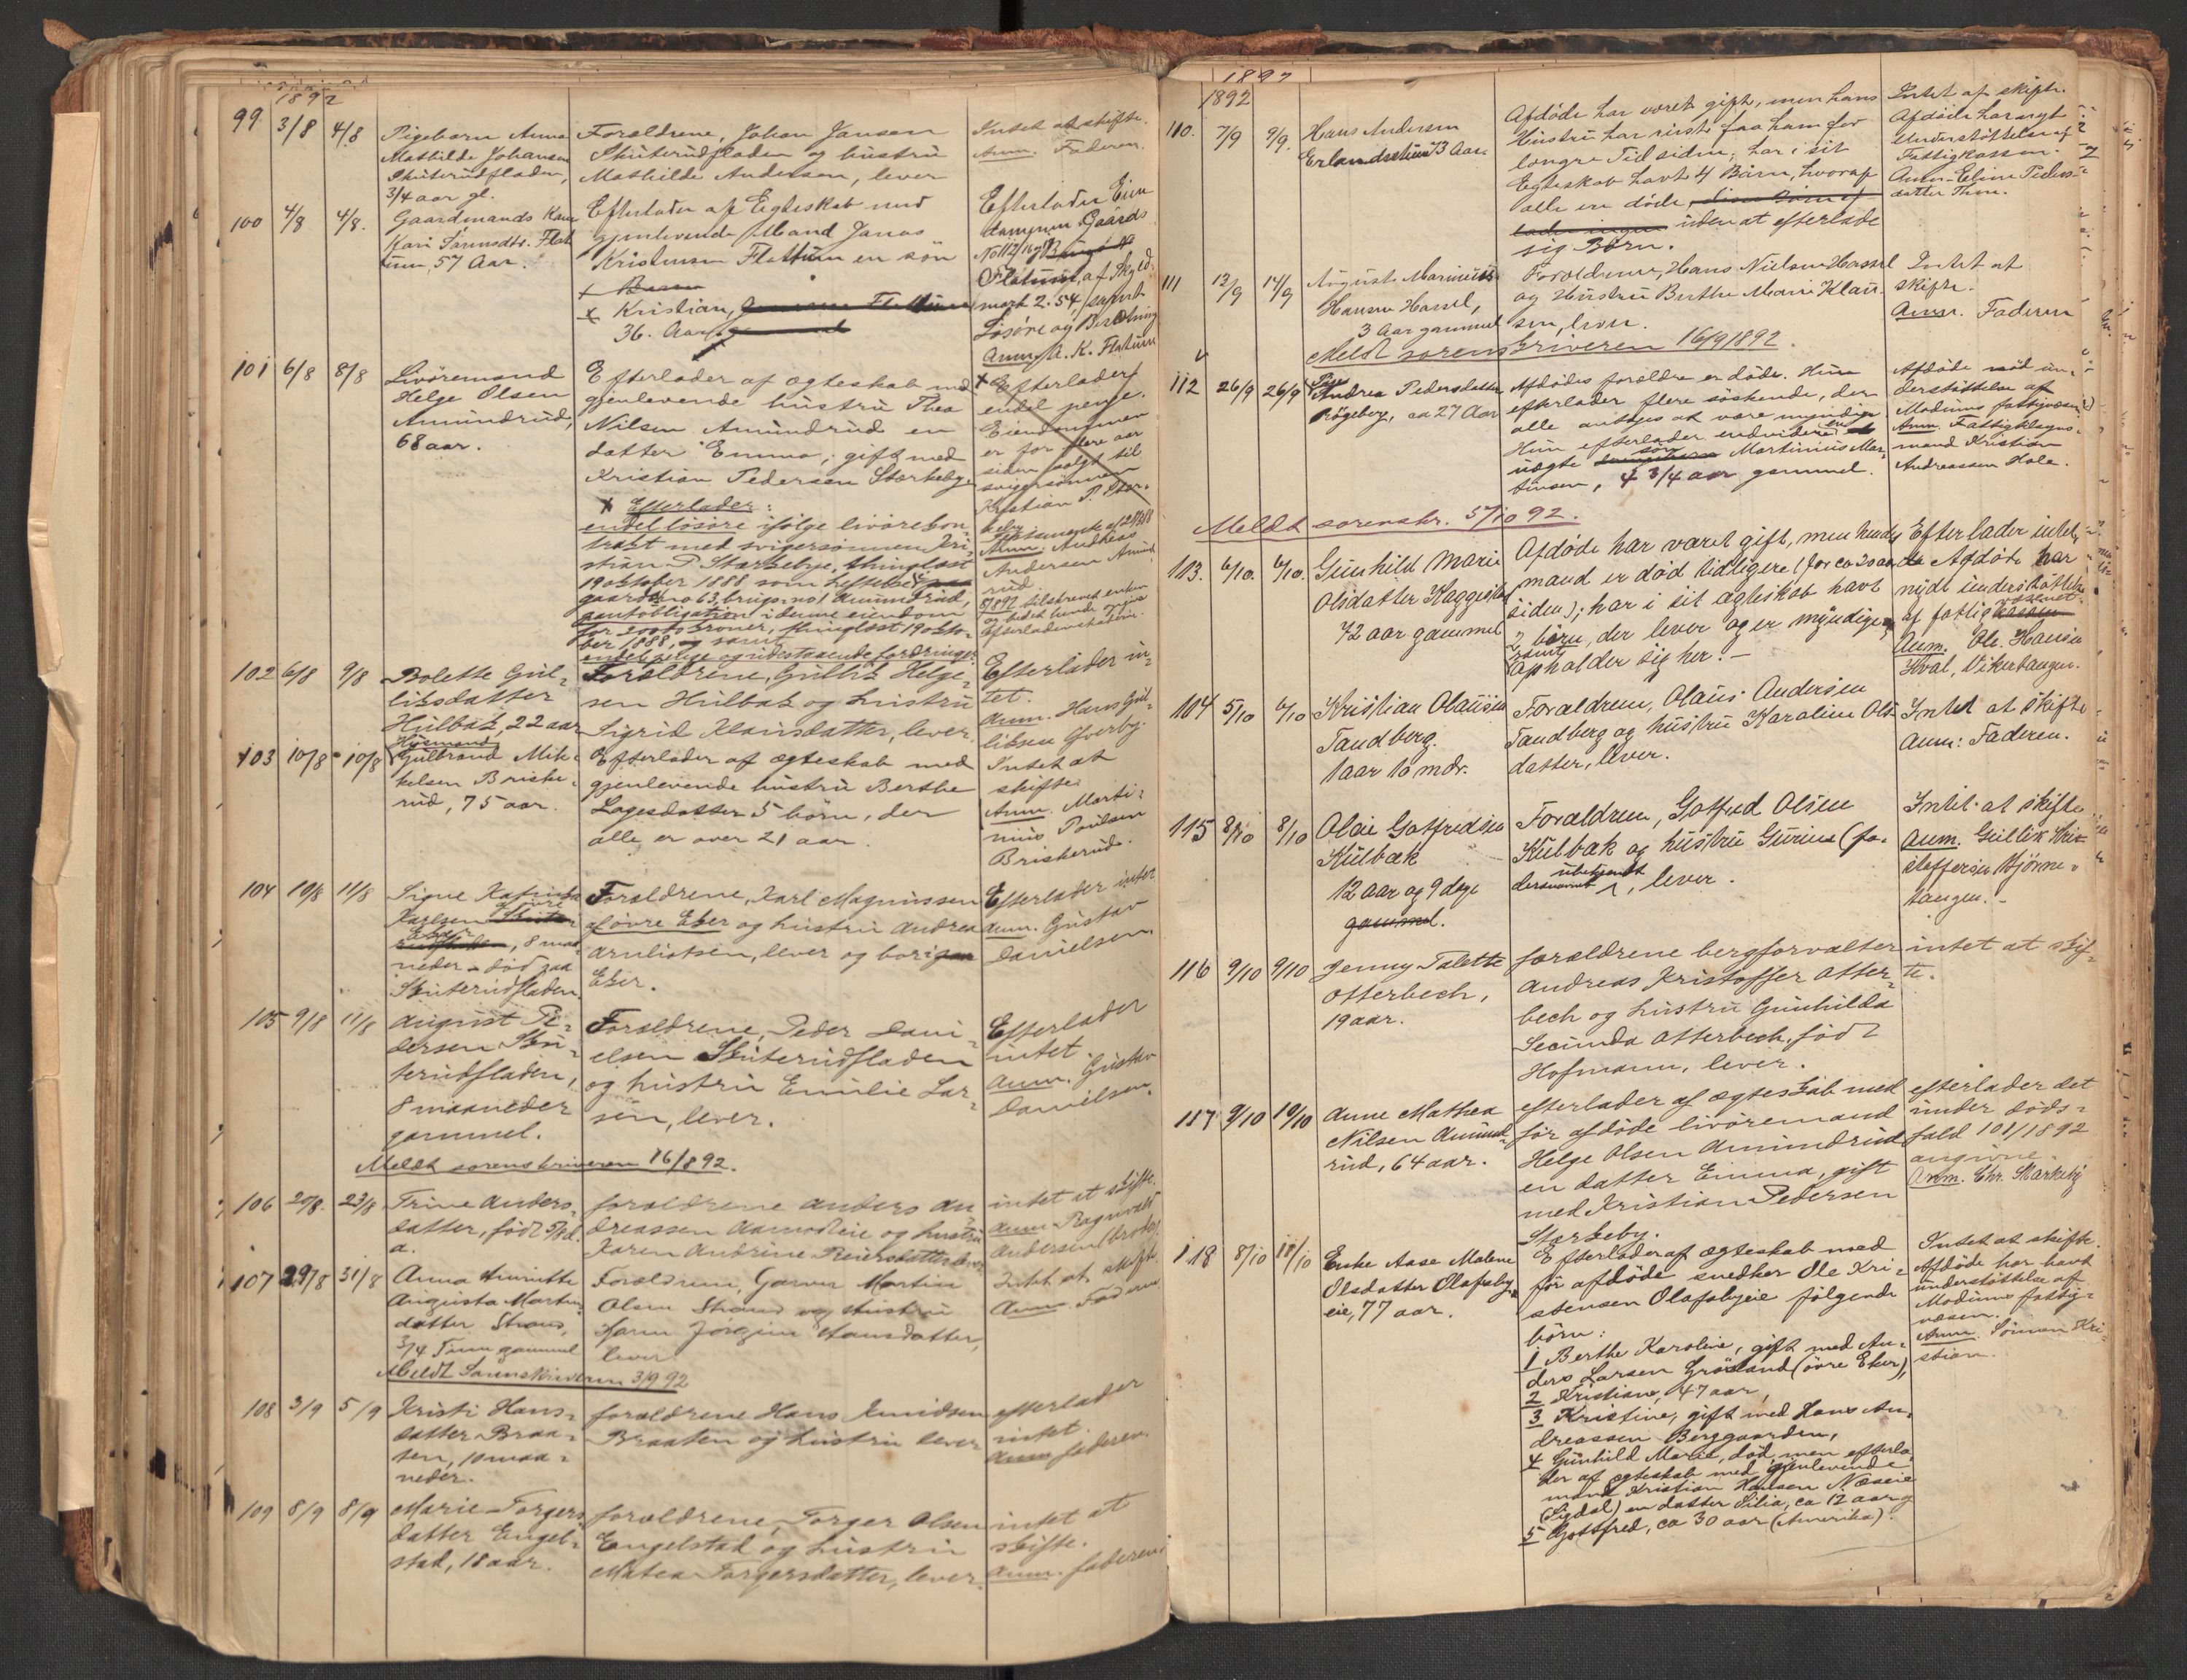 1892
99 3/8 4/8
Pigebarn Anna
Mathilde Johansen
Skuterudfladen,
3/4 aar gl.
Forældrene, Johan Jansen
Skuterudfladen og hustru
Mathilde Andersen, lever
Intet at skifte.
Anm. Faderen.
100 4/8 4/8.
Gaardmands Kone
Kari Sørensdtr. Flat
um, 57 Aar.
Efterlader af Egteskab med
gjenlevende Mand Jonas
Kristensen Flattum en søn
+ Barn
x Kristian,
36. Aar
Efterlader Eien
dommen Gaards
No 112
Flatum, af Skyld
mark 2.54, samt
Løsøre og Besætning
Anm. A. K. Flatum
101 6/8 8/8
Livøremand
Helge Olsen
Amundrud,
68 aar.
Efterlader af ægteskab med
gjenlevende hustru Thea
Nilsen Amundrud en
datter Emma, gift med
Kristian Pedersen Stærkeby
x Efterlader:
endel løsøre ifølge livørekon-
trakt med svigersønnen Kri-
stian P. Stærkebye, thinglæst
19 oktober 1888 som heftelse paa
gaards no 63, brugs-no 1 Amundrud,
pantobligation i denne eiendom
for 2000 kroner, thinglæst 19 okto-
ber 1888, og samt
endel penge og udestaaende fordringer.
x Efterlader
endel penge.
Eiendommen
er for flere aar
siden solgt til
svigersønnen
Kristian P. Stær-
keby
Anm. Andreas
Andersen Amund
rud.
102 6/8 9/8
Bolette Gul-
liksdatter
Hulbak, 22 aar
Forældrene, Gullik Helge-
sen Hulbak og hustru
Sigrid Klausdatter, lever.
Efterlader in-
tet.
Anm. Hans Gul-
liksen Overby.
103 10/8 10/8
Huusmand
Gulbrand Mik-
kelsen Briske-
rud, 75 aar.
Efterlader af ægteskab med
gjenlevende hustru Berthe
Lagesdatter 5 børn, der
alle er over 21 aar.
Intet at
skifte.
Anm. Marti-
nius Poulsen
Briskerud.
104 10/8 11/8
Signe
Karlsen Øvre
Eker, 8 maa-
neder - død paa
Skuterudfladen
Forældrene, Karl Magnussen
af øvre Eker og hustru Andrea
Arnliotsen, lever og bor i
Eker.
Efterlader intet
Anm. Gustav
Danielsen.
105 9/8 11/8
August Pe-
dersen Sku-
terudfladen,
8 maaneder
gammel.
Forældrene, Peder Dani-
elsen Skuterudfladen
og hustru Emilie Lar-
sen, lever.
Efterlader
intet.
Anm. Gustav
Danielsen.
Meldt sorenskriveren 16/8 92.
106 20/8. 23/8
Trine Anders-
datter, født 5/8 d.
a.
forældrene Anders An
dreassen Aamodteie og hustru
Karen Andrine Reiersdatter lever
intet at skifte.
Anm. Ragnvald
Andersen
107 29/8 31/8
Anna Henriette
Augusta Martins
datter Strand,
3/4 Time gammel
Forældrene, Garver Martin
Olsen Strand og Hustru
Karen Jørgine Hansdatter,
lever
Intet at skifte
Anm. Faderen
Meldt Sorenskriveren 3/9 92
108 3/9 5/9
Kristi Hans-
datter Braa-
ten, 10 maa-
neder.
forældrene Hans Knudsen
Braaten og hustru lever
efterlader
intet.
Anm faderen.
109 8/9 8/9
Marie Torgers
datter Engel-
stad, 18 aar.
forældrene, Torger Olsen
Engelstad og hustru
Matea Torgersdatter, lever.
intet at
skifte.
Anm. faderen.
1892
1892
110. 7/9 9/9.
Hans Andersen
Erlandsetum 73 Aar
Afdøde har været gift, men hans
Hustru har reist fra ham for
længre Tid siden; har i sit
Egteskab havt 4 Børn, hvoraf
alle er døde,
uden at efterlade
sig Børn.
Intet at skifte.
Afdøde har nydt
Understøttelse af
Fattigkassen.
Anm. Eline Peders-
datter Thon.
111 12/9 14/9
August Marinius
Hansen Hassel,
3 Aar gammel
Forældrene, Hans Nielsen Hassel
og Hustru Berthe Marie Klau-
sen, lever.
Intet at
skifte.
Anm. Faderen
Meldt sorenskriveren 16/9 1892.
112 26/9 26/9
Pige
Andrea Pedersdatter
Røgeberg, ca 27 Aar
Afdødes forældre er døde. Hun
efterlader flere søskende, der
alle antages at være myndige
Hun efterlader endvidere en
uægte søn Martinius Mar-
tinsen, 4 3/4 aar gammel.
Afdøde nød un-
derstøttelse af
Modums fattigvæsen
Anm. Fattiglægds-
mand Kristian
Andreassen Hole.
Meldt sorenskr. 5/10 92.
113. 6/10. 6/10.
Gunhild Marie
Olsdatter Kaggestad
72 aar gammel
Afdøde har været gift, men hendes
mand er død tidligere (for ca 20 aar
siden); har i sit ægteskab havt
2 børn, der lever og er myndige,
samt
opholder sig her. -
Efterlader intet,
Afdøde har
nydt understøttelse
af fattigvæsenet
Anm. Ole Hansen
Hval, Vikersangen.
104 5/10 6/10
Kristian Olausen
Tandberg.
1 aar 10 mdr.
Forældrene, Olaus Andersen
Tandberg og hustru Karoline Ols
datter, lever.
Intet at skifte
Anm: Faderen.
115 8/10 8/10
Olai Gotfredsen
Kulbæk
12 aar og 9 dage
gammel.
Forældrene, Gotfred Olsen
Kulbæk og hustru Gurine (fa-
dersnavnet ubekjendt, lever.
Intet at skifte
Anm. Gullik Kri-
stoffersen Hjørne-
tangen. -
116 9/10 9/10
Jenny Talette
Otterbech,
19 aar.
forældrene bergforvalter
Andreas Kristoffer Otter-
bech og hustru Gunhilda
Secunda Otterbech, født
Hofmann, lever.
intet at skif-
te.
117 9/10 10/10
Anne Mathea
Nilsen Amund-
rud, 64 aar.
efterlader af ægteskab med
før afdøde livøremand
Helge Olsen Amundrud
en datter Emma, gift
med Kristian Pedersen
Stærkeby.
efterlader det
under døds-
fald 101/1892
angivne.
Anm. Chr. Stærkeby
118 8/10 18/10
Enke Aase Malene
Olsdatter Olafsby-
eie, 77 aar.
Efterlader af ægteskab med
før afdøde snedker Ole Kri-
stensen Olafsbyeie følgende
børn:
1 Berthe Karoline, gift med An-
ders Larsen Grøsland (øvre Eker),
2 Kristiane, 47 aar,
3 Kristine, gift med Hans An-
dreassen Berggaarden,
4 Gunhild Marie, død, men efterla-
der af ægteskab med gjenlevende
mand Kristian Hansen Næseie
(Sigdal) en datter Silia, ca 12 aar og
5 Gottfred, ca 30 aar (Amerika).
Intet at skifte
Afdøde har havt
understøttelse af
Modums fattig-
væsen.
Anm. Sønnen Kri-
stian.